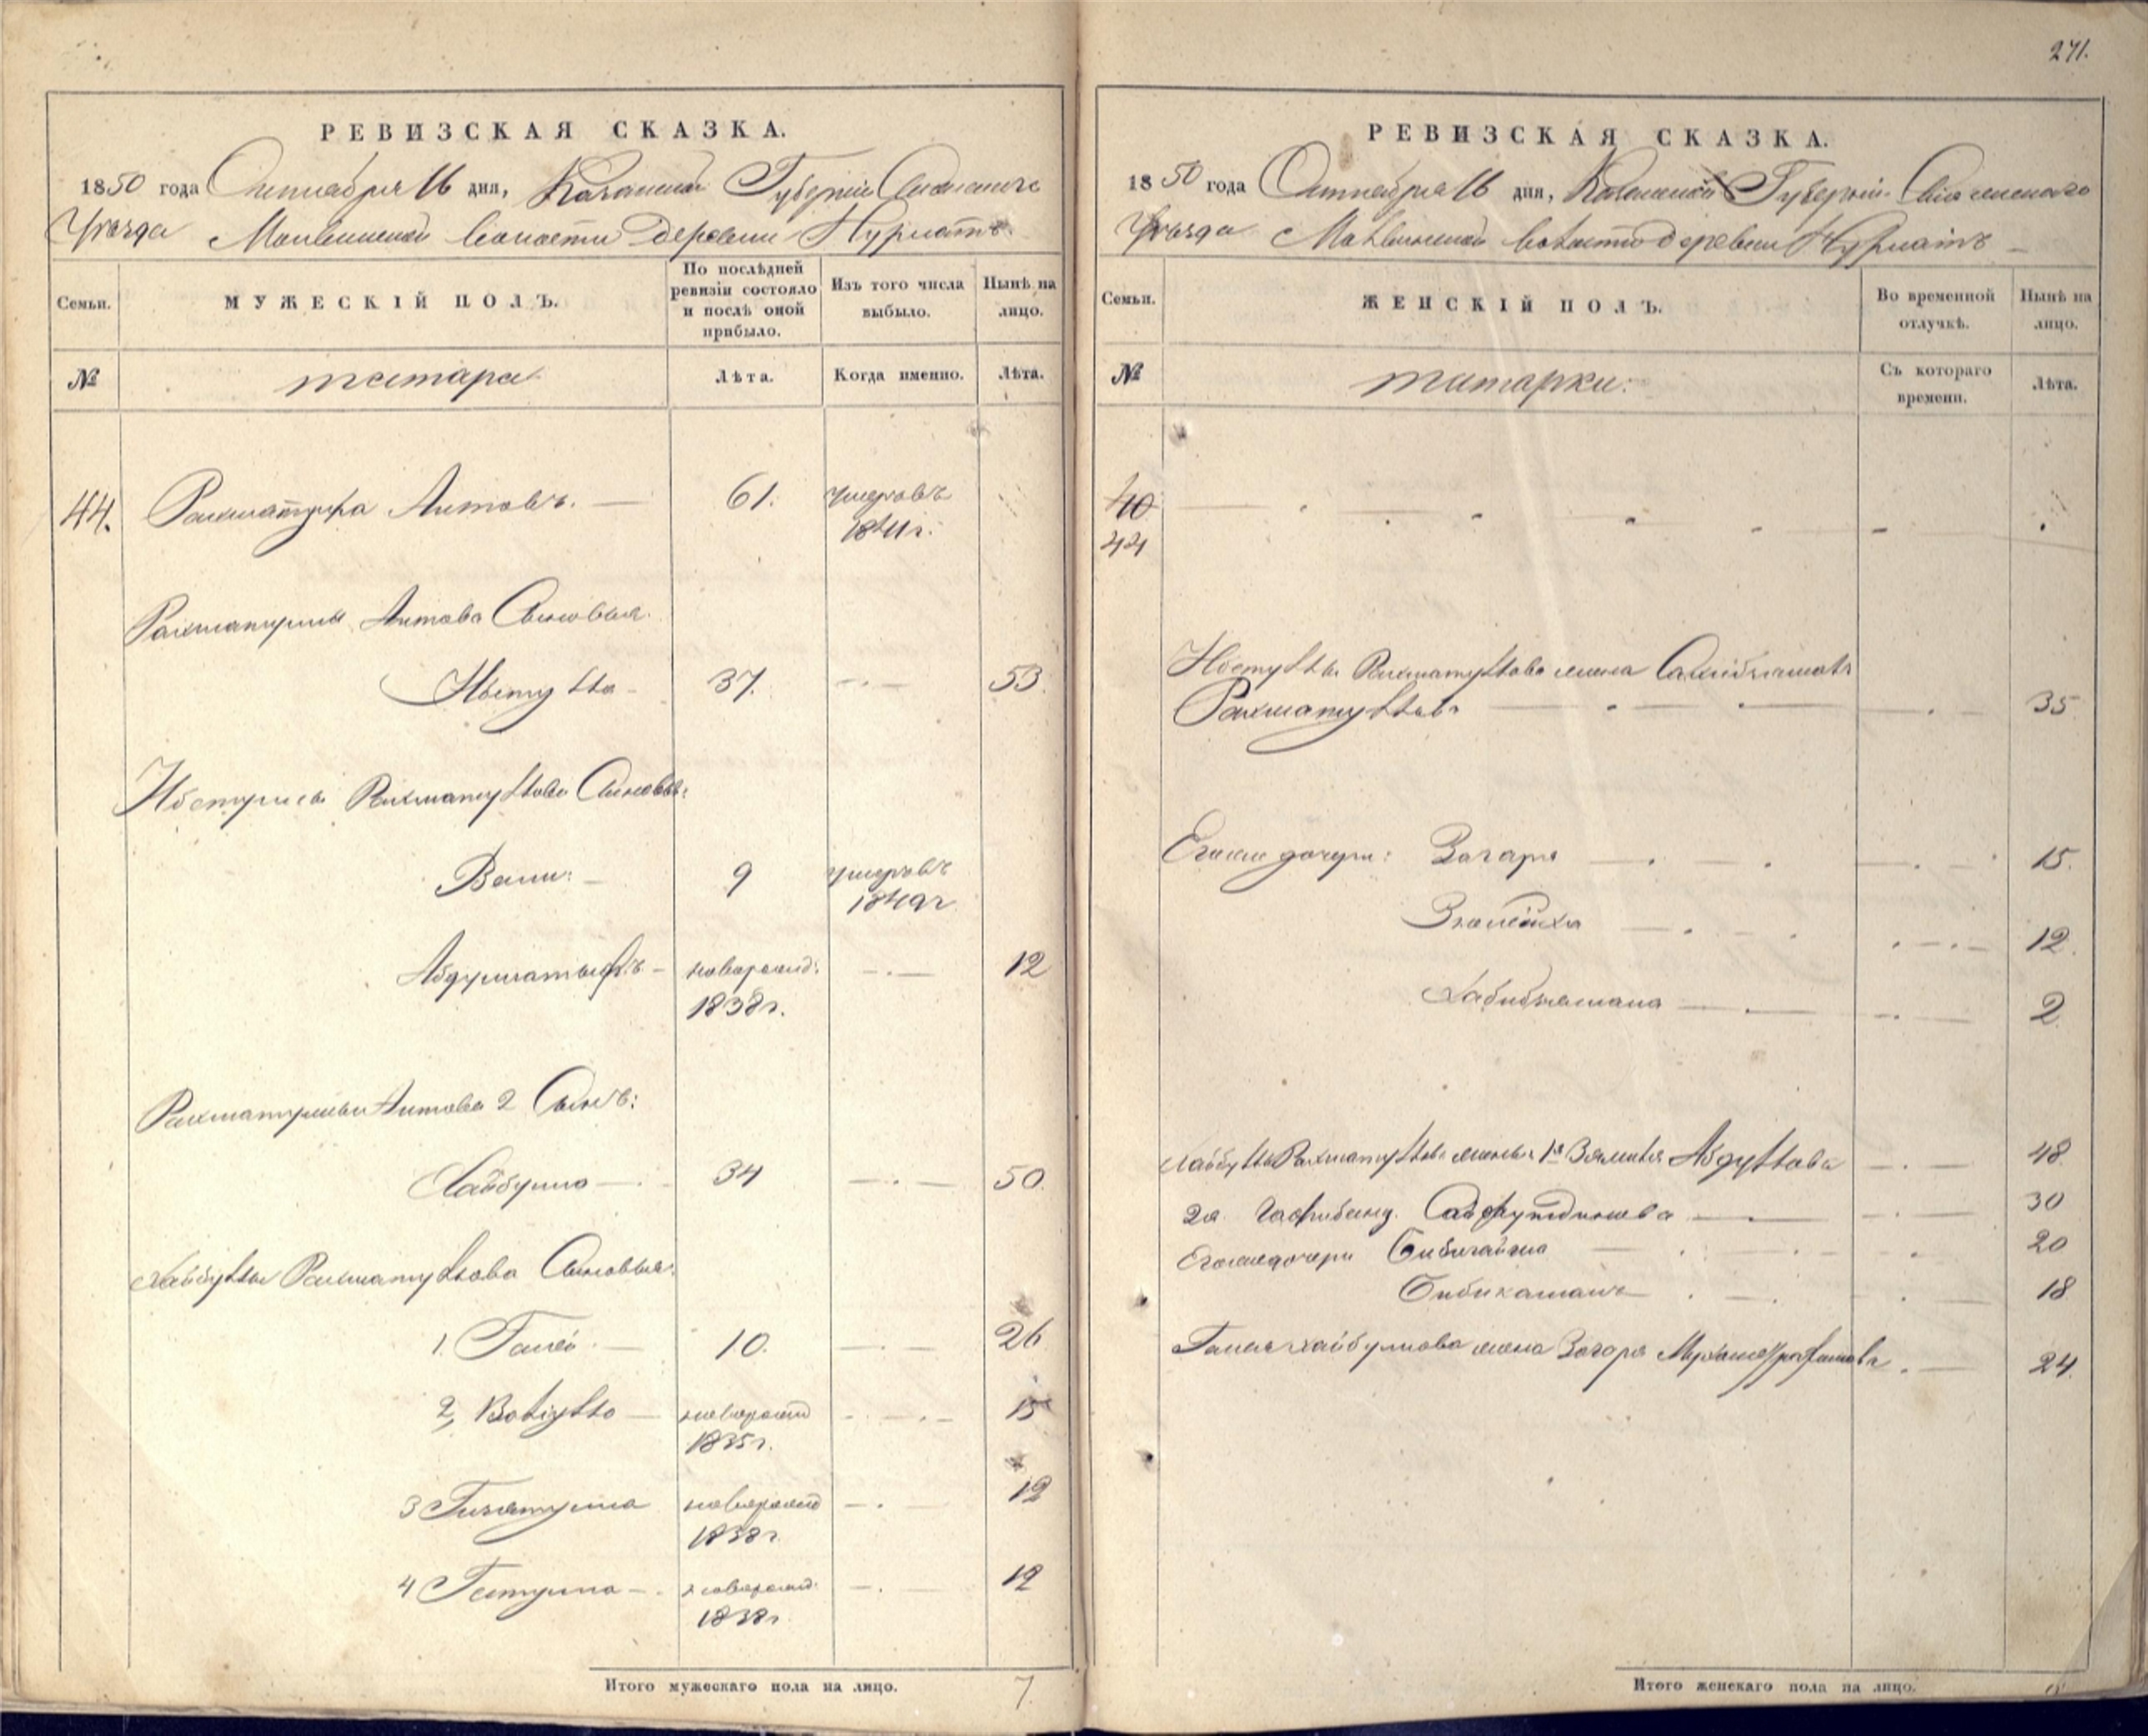 271.
РЕВИЗСКАЯ СКАЗКА.
1850 года Октября 16 дня, Казанской Губернии Свіяжскаго
Уѣзда Молвинской Волости Деревни Нурлатъ.
Семьи.
МУЖЕСКІЙ ПОЛЪ.
По послѣдней ревизіи состояло и послѣ оной прибыло.
Изъ того числа выбыло.
Нынѣ на лицо.
№
татара
Лѣта.
Когда именно.
Лѣта.
44. Рахматулла Аитовъ. 61. умеръ въ
184 г.
Рахматуллы Аитова Сыновья.
37. 53.
Рахматуллова Сыновья:
Вали: 9 умеръ въ
1849 г
Абдуллатыфъ новорожд: 12
1838 г.
Рахматуллы Аитова 2 Сынъ:
Хайбулла 34 50.
Хайбуллы Рахматуллова Сыновья:
1. Галей 10. 26
2, новорожд 15
1835 г.
3 Гизатулла новорожд 12
1838 г.
4 новорожд. 12
1838 г.
Итого мужескаго пола на лицо. 7
РЕВИЗСКАЯ СКАЗКА.
1850 года Октября 16 дня, Казанской Губерніи Свіяжскаго
Уѣзда Молвинской Волости Деревни Нурлатъ
Семьи.
ЖЕНСКІЙ ПОЛЪ.
Во временной отлучкѣ.
Нынѣ на лицо.
№
татарки:
Съ котораго времени.
Лѣта.
40
44
Рахматуллова жена
Рахматуллова 35
Его же дочери: Загара 15.
12.
Хабибжамала 2
Хайбуллы Рахматуллова жены 1я Абдуллова 48
2я Сайфутдинова 30
Его же дочери 20
Бибикамалъ 18
Галея Хайбуллова жена Загара 24.
Итого женскаго пола на лицо.